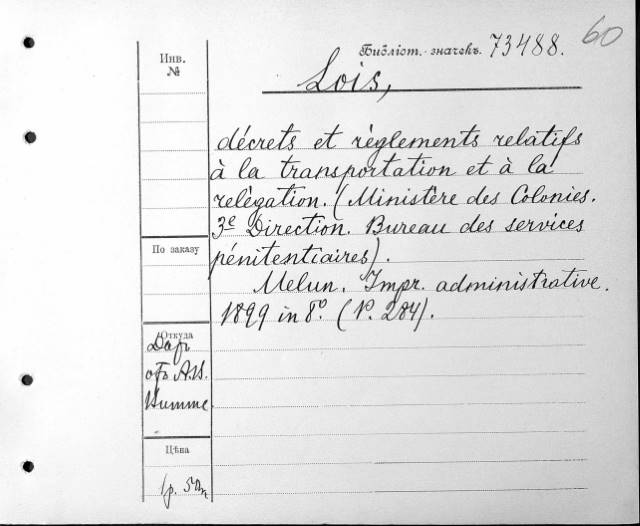 60
Библіот. значекъ 73488.
Инв.
№
Lois,
décrets et règlements relatifs
à la transportation et à la
relégation. (Ministère des Colonies.
3e Direction. Bureau des services
pénitentiaires).
Melun. Impr. administrative.
1899 in 8º. (P. 284).
По заказу
Откуда
Даръ
отъ А.И.
Цѣна
1р. 50к